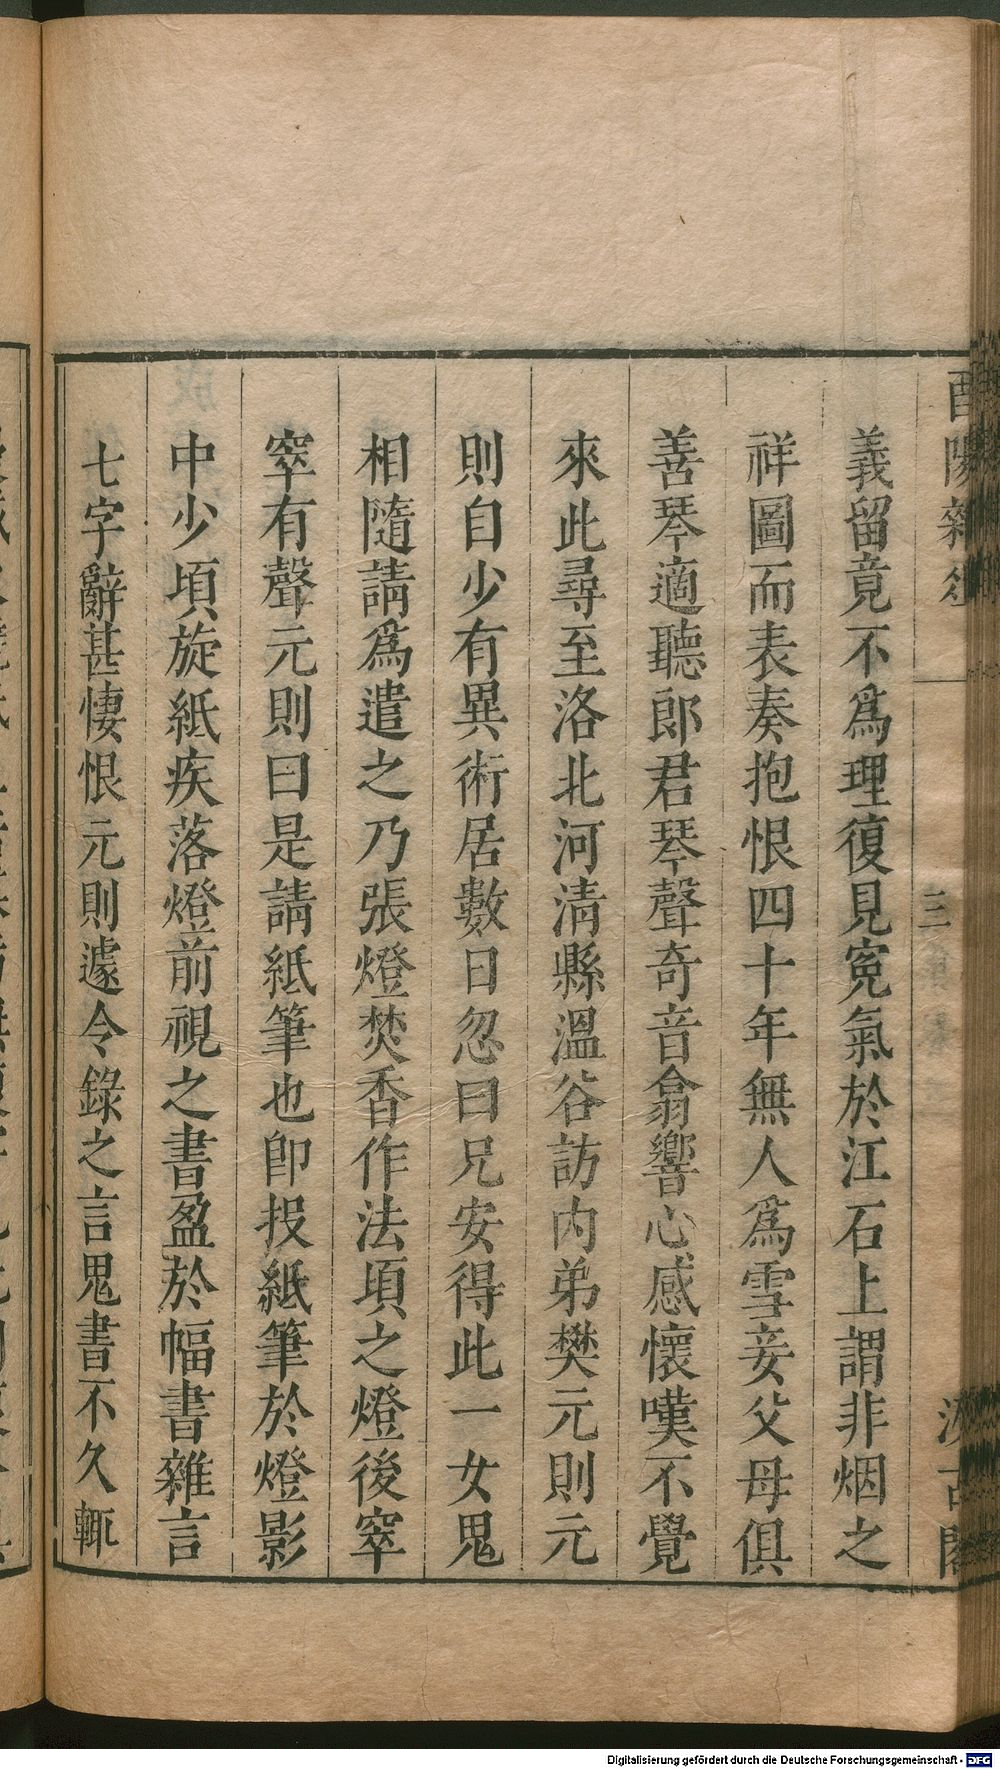 酉陽雜俎
三
汲古閣
義留竟不爲理復見寃氣於江石上謂非烟之
祥圖而表奏抱恨四十年無人爲雪妾父母俱
善琴適聽郎君琴聲奇音翕響心感懷嘆不覺
來此尋至洛北河淸縣溫谷訪內弟樊元則元
則自少有異術居數日忽曰兄安得此一女鬼
相隨請爲遣之乃張燈焚香作法頃之燈後窣
窣有聲元則曰是請紙筆也卽投紙筆於燈影
中少頃旋紙疾落燈前視之書盈於幅書雜言
七字辭甚悽恨元則遽令錄之言鬼書不久輒
Digitalisierung gefördert durch die Deutsche Forschungsgemeinschaft - DFG